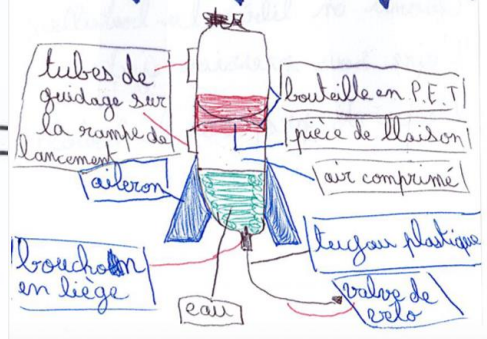 tubes de
guidage sur
la rampe de
lancement
aileron
bouchon
en liège
eau
bouteille en P.E.T
pièce de llaison
air comprimé
tuyau plastique
valve de
vélo